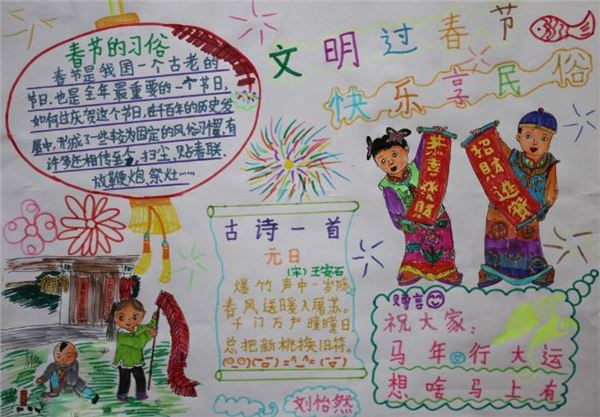 文明过春节
快乐享民俗
春节的习俗
春节是我国一个古老的
节日,也是全年最重要的一个节日,
如何过庆贺这个节日,在千百年的历史发
展中,形成了一些较为固定的风俗习惯,有
许多还相传至今,扫尘、贴春联、
放鞭炮、祭灶……
恭喜發財
招財進寶
古诗一首
元日
(宋)王安石
爆竹声中一岁除
春风送暖入屠苏。
千门万户曈曈日,
总把新桃换旧符。
赠言
祝大家:
马年行大运
想啥马上有
刘怡然